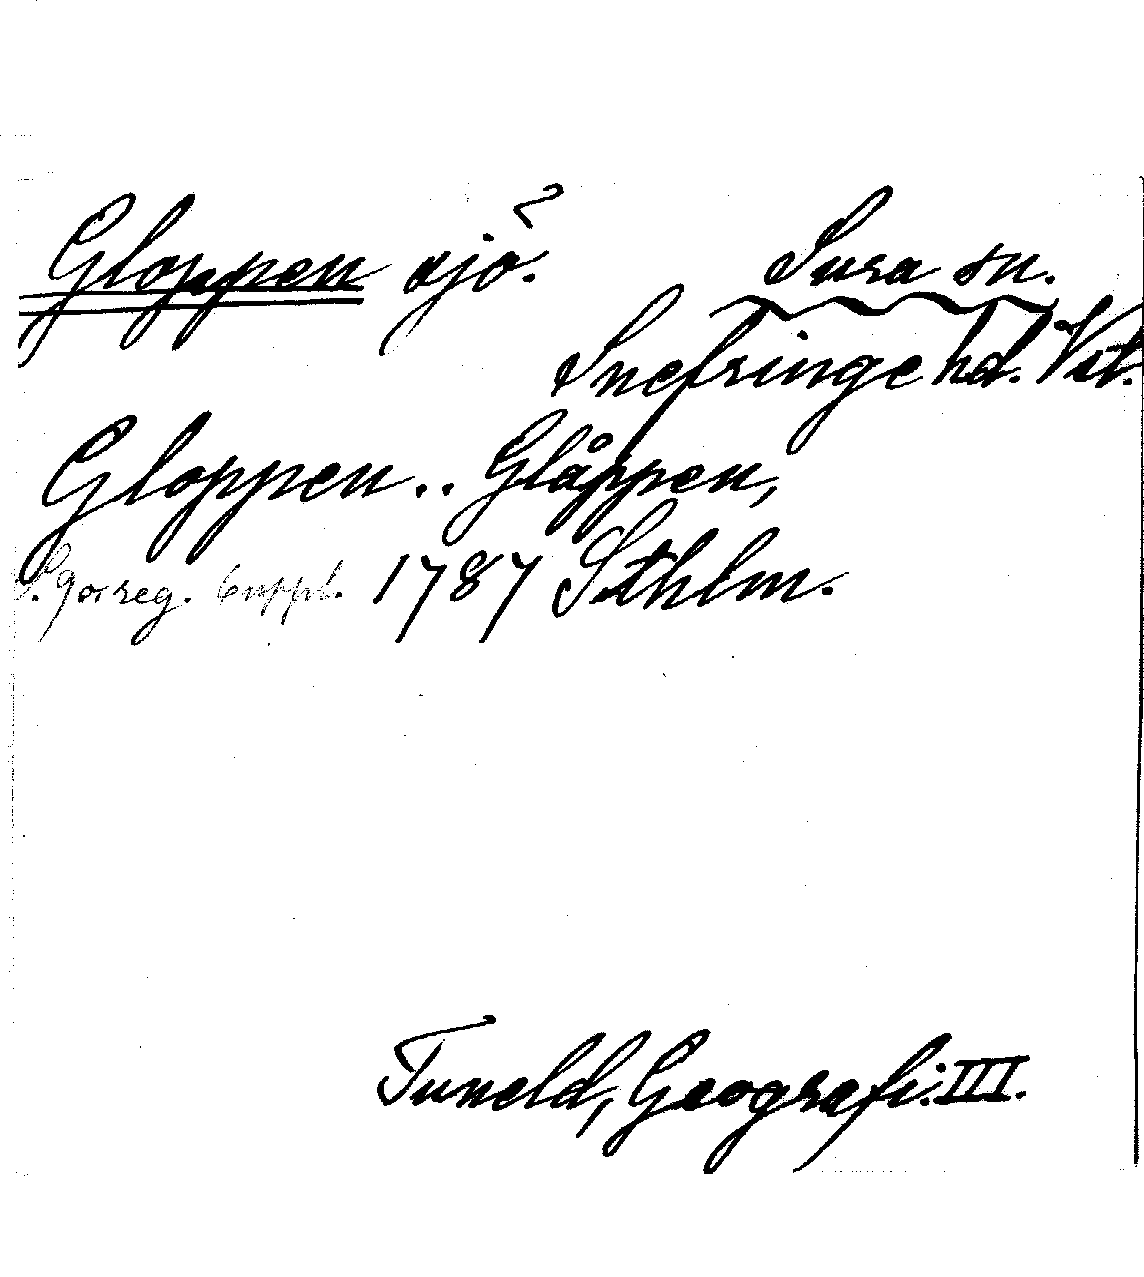 Gloppen sjö.
Sura sn.
Snefringe hd. Vst.
Gloppen.. Glåppen,
S. 9 1787 Sthlm.
Tuneld, Geografi. III.